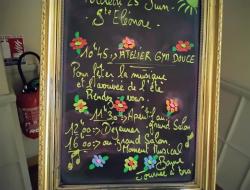 25 Juin
Ste Eléonore.
10h45 : ATELIER GYM DOUCE
Pour fêter la musique
et l'arrivée de l'été
Rendez vous.
11h30 : Apéritif au grand Salon
12h00 : Déjeuner
16h00 au Grand Salon
Moment Musical